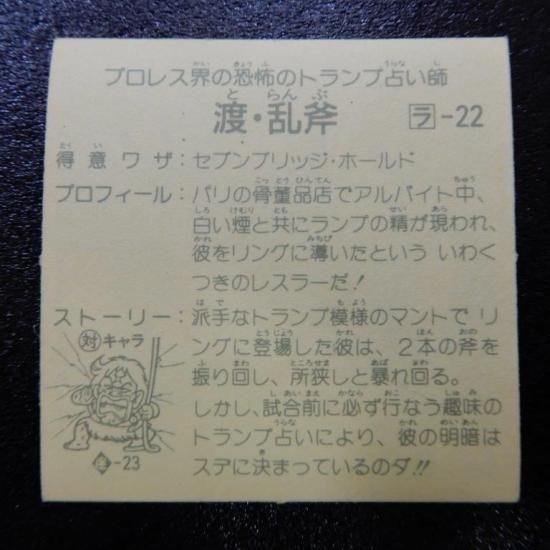 プロレス界の恐怖のトランプ占い師
渡・乱斧 ラ-22
得意ワザ：セブンブリッジ・ホールド
プロフィール：パリの骨董品店でアルバイト中、
白い煙と共にランプの精が現われ、
彼をリングに導いたという いわく
つきのレスラーだ！
ストーリー：派手なトランプ模様のマントで リ
ングに登場した彼は、2本の斧を
振り回し、所狭しと暴れ回る。
しかし、試合前に必ず行なう趣味の
トランプ占いにより、彼の明暗は
スデに決まっているのダ!!
対キャラ
-23